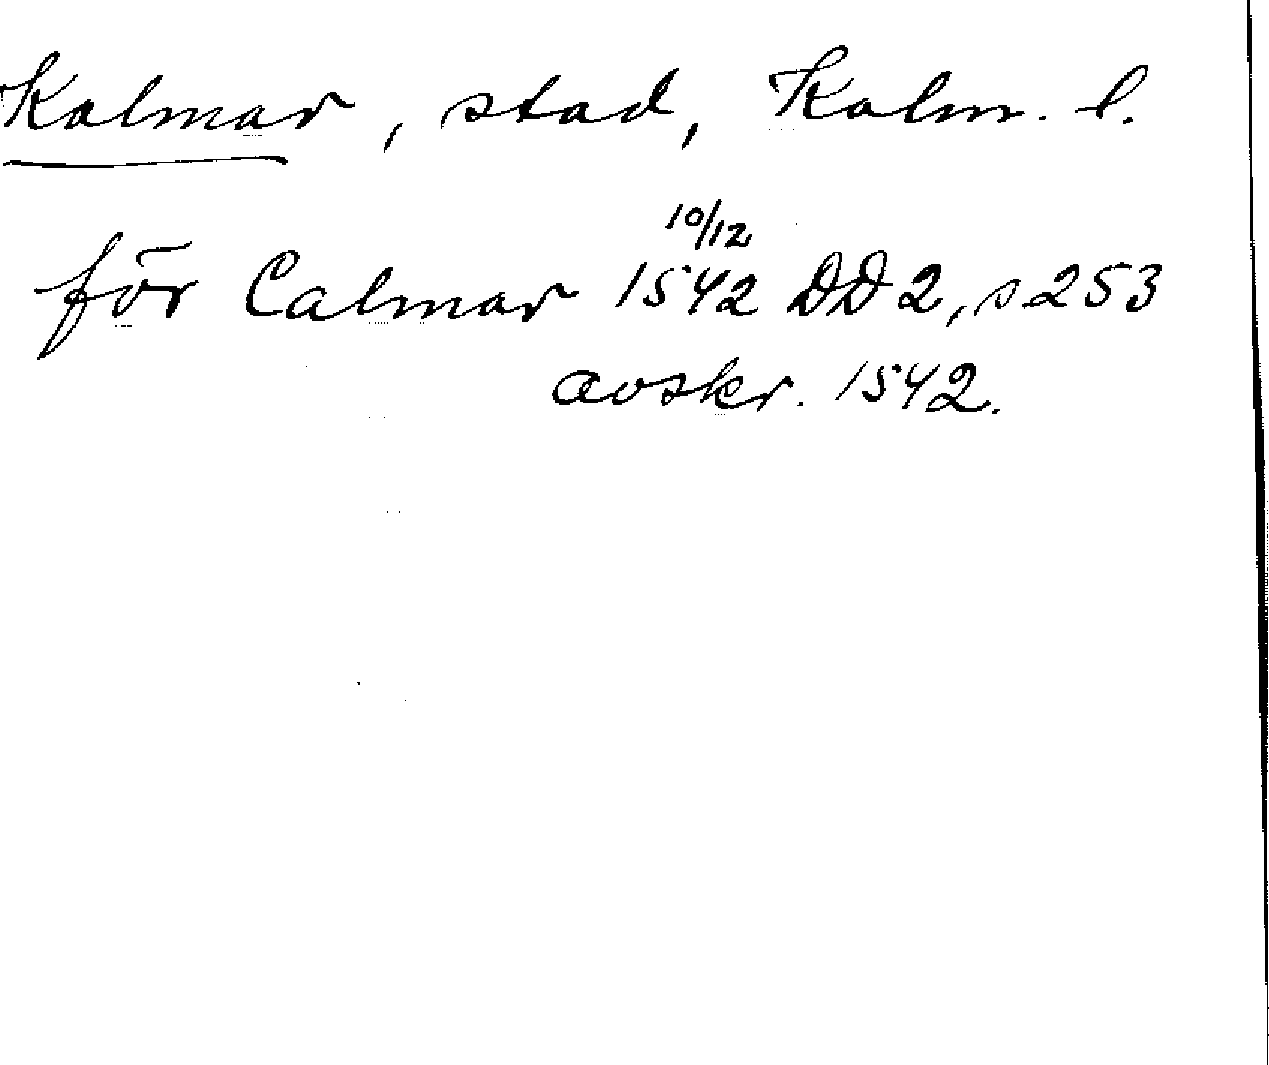 Kalmar, stad, Kalm. l.
10/12
för Calmar 1542 DD2, s 253
avskr. 1542.